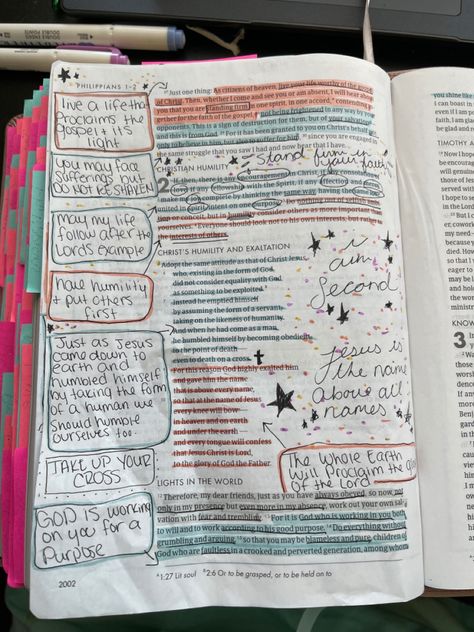 PHILIPPIANS 1–2
live a life that
proclaims the
gospel + its
light
You may face
sufferings but
DO NOT BE SHAKEN
May my life
follow after the
Lords example
have humility
+ put others
first
Just as Jesus
came down to
earth and
humbled himself
by taking the form
of a human we
should humble
ourselves too.
TAKE UP YOUR
CROSS
GOD IS working
on you for a
Purpose
2002
27 Just one thing: As citizens of heaven, live your life worthy of the gospel
of Christ. Then, whether I come and see you or am absent, I will hear about
you that you are standing firm in one spirit, in one accord, contending together
for the faith of the gospel, 28 not being frightened in any way by your
opponents. This is a sign of destruction for them, but of your salvation—
and this is from God. 29 For it has been granted to you on Christ's behalf not
only to believe in him, but also to suffer for him, 30 since you are engaged in
the same struggle that you saw I had and now hear that I have.
stand firm in
your faith
CHRISTIAN HUMILITY
2 If, then, there is any encouragement in Christ, if any consolation of
love, if any fellowship with the Spirit, if any affection and mercy,
2 make my joy complete by thinking the same way, having the same love,
united in spirit, intent on one purpose. 3 Do nothing out of selfish ambition
or conceit, but in humility consider others as more important than
yourselves. 4 Everyone should look not to his own interests, but rather to
the interests of others.
CHRIST'S HUMILITY AND EXALTATION
5 Adopt the same attitude as that of Christ Jesus,
6 who, existing in the form of God,
did not consider equality with God
as something to be exploited.
7 Instead he emptied himself
by assuming the form of a servant,
taking on the likeness of humanity.
And when he had come as a man,
8 he humbled himself by becoming obedient
to the point of death—
even to death on a cross.
9 For this reason God highly exalted him
and gave him the name
that is above every name,
10 so that at the name of Jesus
every knee will bow—
in heaven and on earth
and under the earth—
11 and every tongue will confess
that Jesus Christ is Lord,
to the glory of God the Father.
i
am
second
Jesus is
the name
above all
names
The whole Earth
will proclaim the
of the Lord
LIGHTS IN THE WORLD
12 Therefore, my dear friends, just as you have always obeyed, so now, not
only in my presence but even more in my absence, work out your own salvation
with fear and trembling. 13 For it is God who is working in you both
to will and to work according to his good purpose. 14 Do everything without
grumbling and arguing, 15 so that you may be blameless and pure, children of
God who are faultless in a crooked and perverted generation, among whom
1:27 Lit soul 2:6 Or to be grasped, or to be held on to
you shine like
TIMOTHY A
3